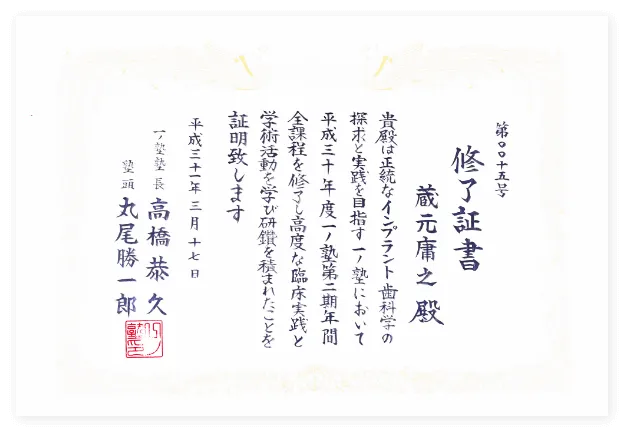 第〇〇十五号
修了証書
蔵元庸之殿
貴殿は正統なインプラント歯科学の
探求と実践を目指す一ノ塾において
平成三十年度一ノ塾第二期年間
全課程を修了し高度な臨床実践と
学術活動を学び研鑽を積まれたことを
証明致します
平成三十一年三月十七日
一ノ塾塾長 高橋恭久
塾頭 丸尾勝一郎